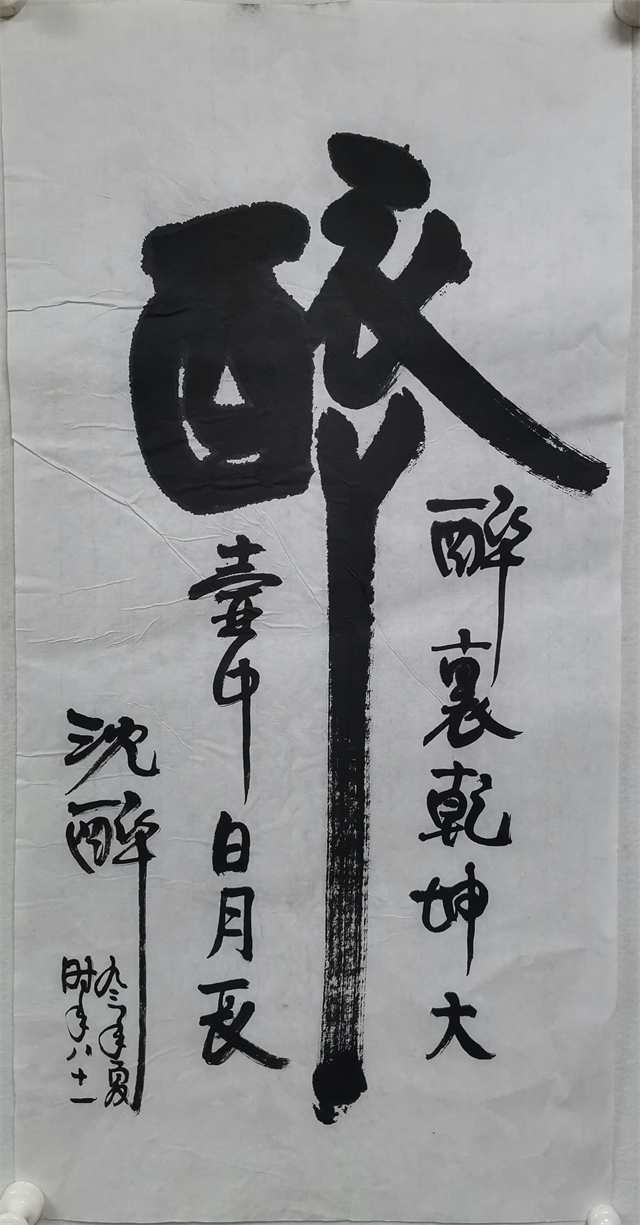 醉
醉裏乾坤大
壺中日月長
沈醉
九三年夏
时年八十一